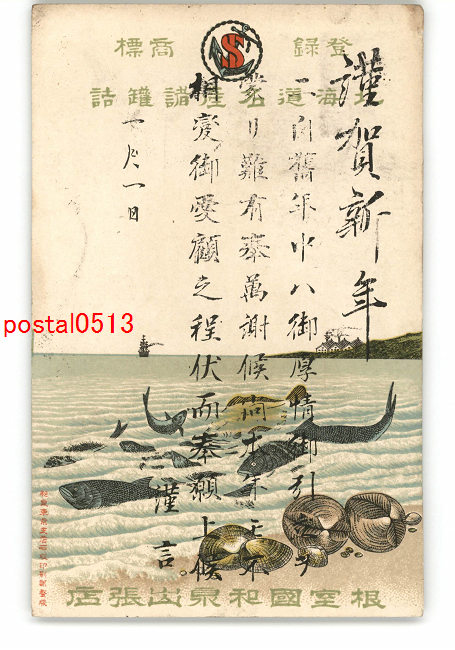 標商 錄登
S
謹賀新年
一白舊年中ハ御厚情御引立ヲ
蒙リ難有奉萬謝候尚本年モ不
相變御愛顧之程伏而奉願上候
謹言
一月一日
postal0513
店張出泉和國室根